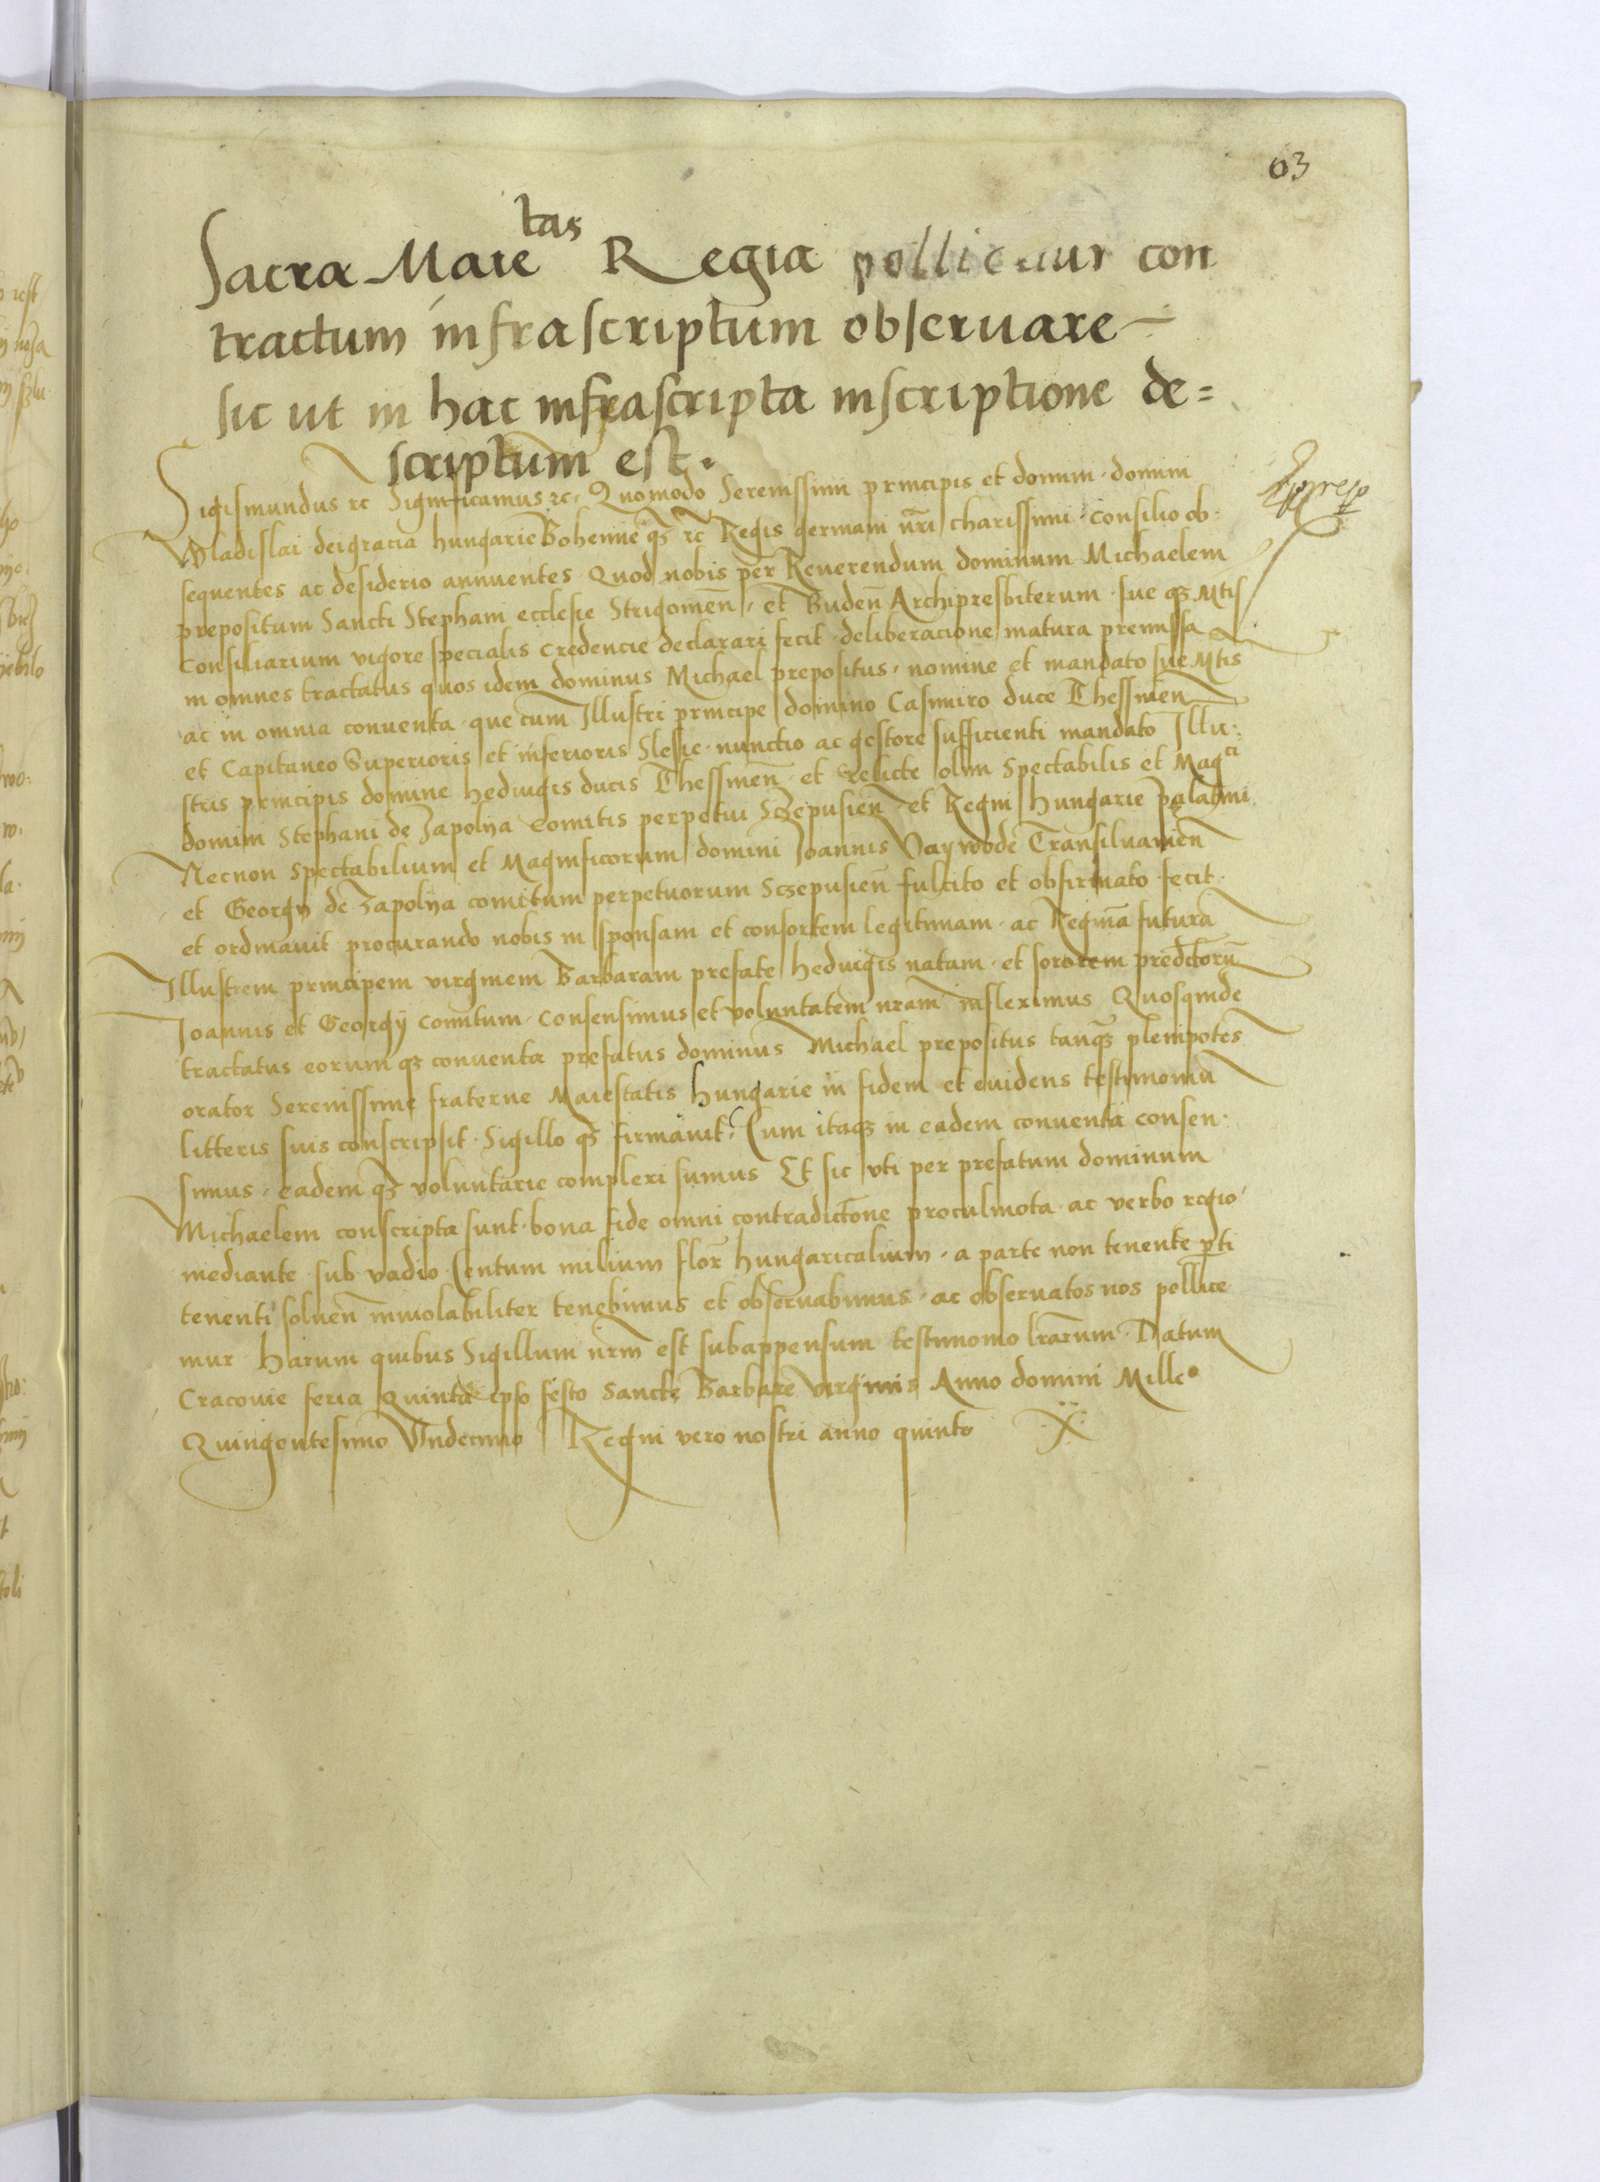 63
Sacra Maietas Regia pollicetur con
tractum infrascriptum obseruare
sic ut in hac infrascripta inscriptione de=
scriptum est.
Sigismundus rc Significamus rc. Quomodo Serenissimi principis et domini domini
Wladislai deigracia hungarie Bohemie qz rc Regis germani nri charissimi consilio ob:
sequentes ac desiderio annuentes Quod nobis per Reuerendum dominum Michaelem
prepositum Sancti Stephani ecclesie Strigonien et Buden Archipresbiterum sue qz Mtis
Consiliarium vigore specialis credencie declarari fecit deliberacione matura premissa
in omnes tractatus quos idem dominus Michael prepositus nomine et mandato sue Mtis
ac in omnia conuenta que cum Illustri principe domino Casimiro duce Thessinen
et Capitaneo Superioris et inferioris Slesie nunctio ac gestore sufficienti mandato Illu:
stris principis domine hedwigis ducis Thessinen et relicte olim Spectabilis et Magci
domini Stephani de Zapolya comitis perpetui Sczepusien et Regni Hungarie palatini
Necnon Spectabilium et Magnificorum domini Ioannis Vaywode Transiluanien
et Georgij de Zapolya comitum perpetuorum Sczepusien fulcito et obfirmato fecit
et ordinauit procurando nobis in sponsam et consortem legittimam ac Regina futura
Illustrem principem virginem Barbaram prefate heduigis natam et sororem predictoru
Ioannis et Georgij comitum Consensimus et voluntatem nram infleximus Quosquide
tractatus eorum qz conuenta prefatus dominus Michael prepositus tanqz plenipotes
orator Serenissime fraterne Maiestatis Hungarie in fidem et euidens testimoniu
litteris suis conscripsit Sigillo qz firmauit Cum itaqz in eadem conuenta consen:
simus eadem qz voluntarie complexi sumus Et sic vti per prefatum dominum
Michaelem conscripta sunt bona fide omni contradictone proculmota ac verbo regio
mediante sub vadio Centum milium flor hungaricalium a parte non tenente pti
tenenti soluen inuiolabiliter tenebimus et obseruabimus ac obseruatos nos pollice
mur Harum quibus Sigillum nrm est subappensum testimonio lrarum Datum
Cracouie feria quinta ipso festo Sancte Barbare virginis Anno domini Mille
Quingentesimo Vndecimo Regni vero nostri anno quinto